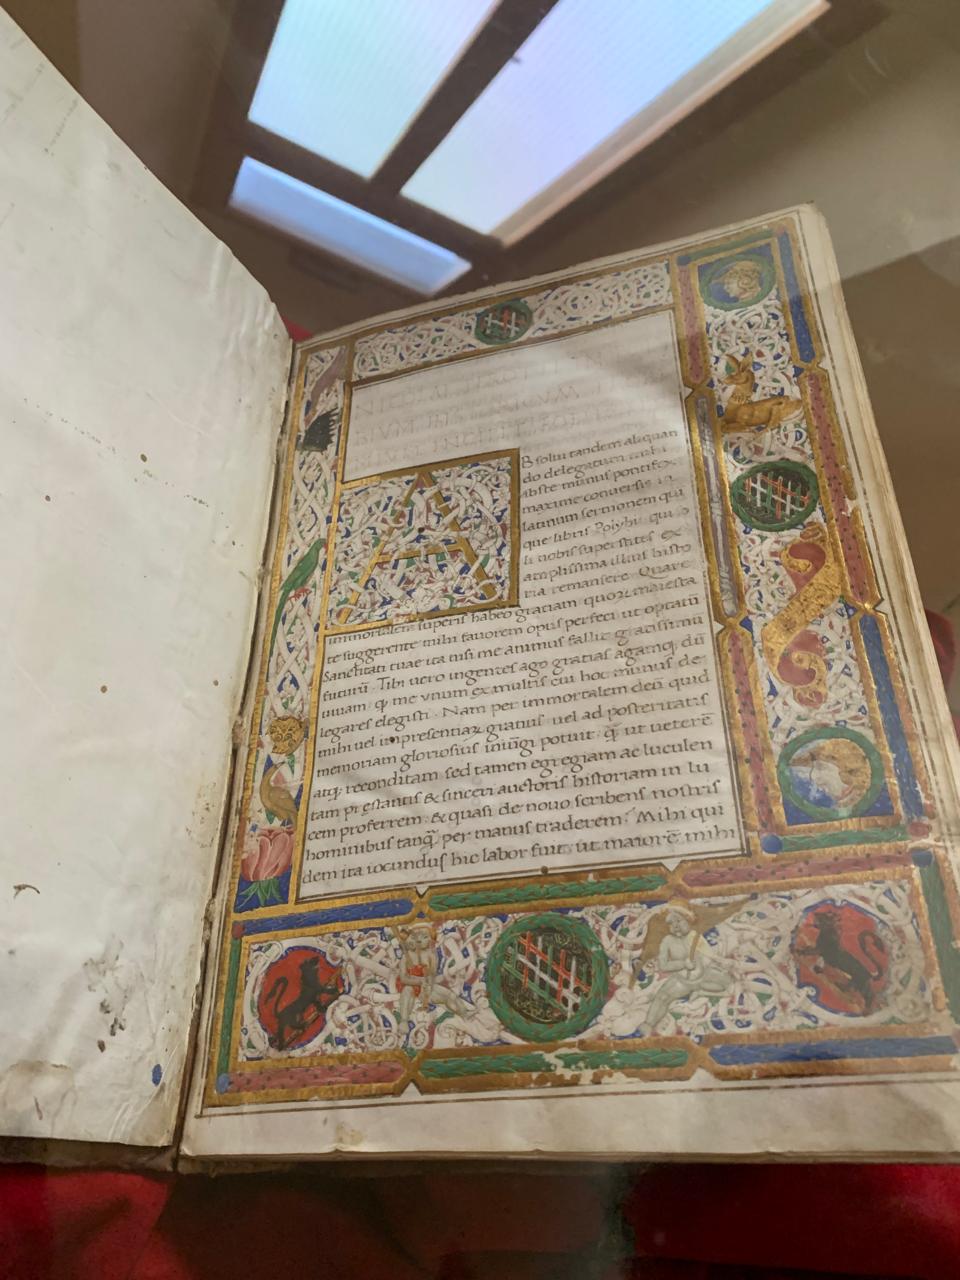 A
Bsolui tandem aliquan
do delegatum mihi
abste munus pontifex
maxime conuersis in
latinum sermonem qui
que libris Polybii qui
nobis superstites ex
amplissima illius histo
ria remansere. Quare
immortalem superis habeo gratiam quoꝝ maiesta
te suggerente mihi fauorem opus perfeci ut optatū
Sanctitati tuae ita nisi me animus fallit gratissimū
futurū. Tibi uero ingentes ago gratias agamqꝫ dū
uiuam. qꝫ me vnum ex multis cui hoc munus de
legares elegisti. Nam per immortalem deū quid
mihi uel impresentiaꝝ gratius uel ad posteritatis
memoriam gloriosius iniūgi potuit. q̄ ut ueterē
atqꝫ reconditam sed tamen egregiam ac luculen
tam pręstantis & sinceri auctoris historiam in lu
cem proferrem. & quasi de nouo scribens nostris
hominibus tanq̄ per manus traderem. Mihi qui
dem ita iocundus hic labor fuit. ut maiorē mihi